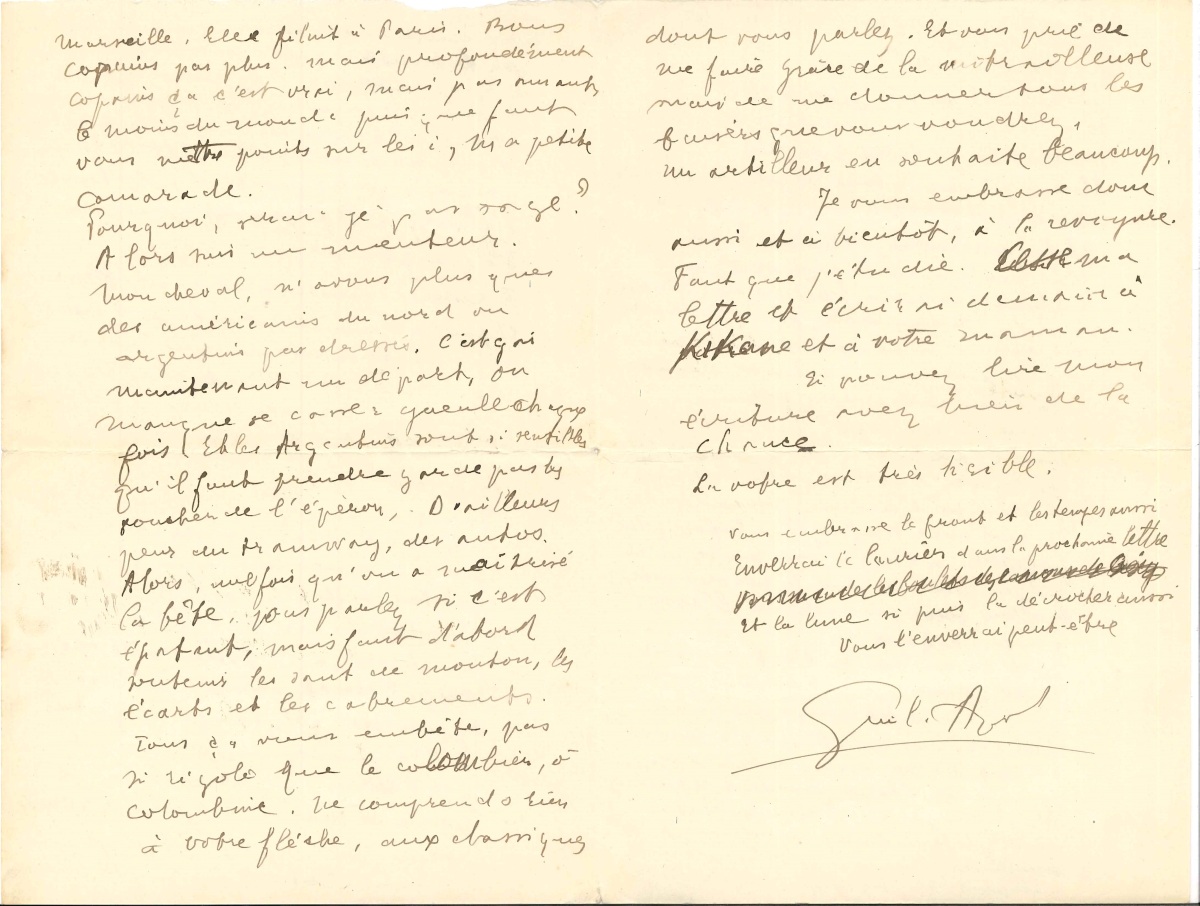 Marseille. Elle filait à Paris. Bons
copains pas plus. mais profondément
copains ça c'est vrai, mais pas amants
le moins du monde puisque faut
vous mettre points sur les i, ma petite
camarade.
Pourquoi, serai-je pas sage?
Alors suis un menteur.
Mon cheval, n'avons plus que
des américains du nord ou
argentins pas dressés. C'est gai
maintenant un départ, on
manque se casser gueule chaque
fois. Et les Argentins sont si sensibles
qu'il faut prendre garde pas les
toucher de l'éperon. D'ailleurs
peur du tramway, des autos.
Alors, une fois qu'on a maîtrisé
la bête, vous parlez si c'est
épatant, mais faut d'abord
soutenir les saut de mouton, les
écarts et les cabrements.
Tout ça vous embête, pas
si rigolo que le colombier, ô
colombine. Ne comprends rien
à votre flèche, aux classiques
dont vous parlez. Et vous prie de
me faire grâce de la mitrailleuse
mais de me donner tous les
baisers que vous voudrez,
un artilleur en souhaite beaucoup.
Je vous embrasse donc
aussi et à bientôt, à la revoyure.
Faut que j'étudie. ma
lettre et écrirai demain à
et à votre maman.
Si pouvez lire mon
écriture avez bien de la
chance.
La votre est très lisible.
Vous embrasse le front et les tempes aussi
Enverrai le laurier dans la prochaine lettre
Et la lune si puis la décrocher aussi
Vous l'enverrai peut-être